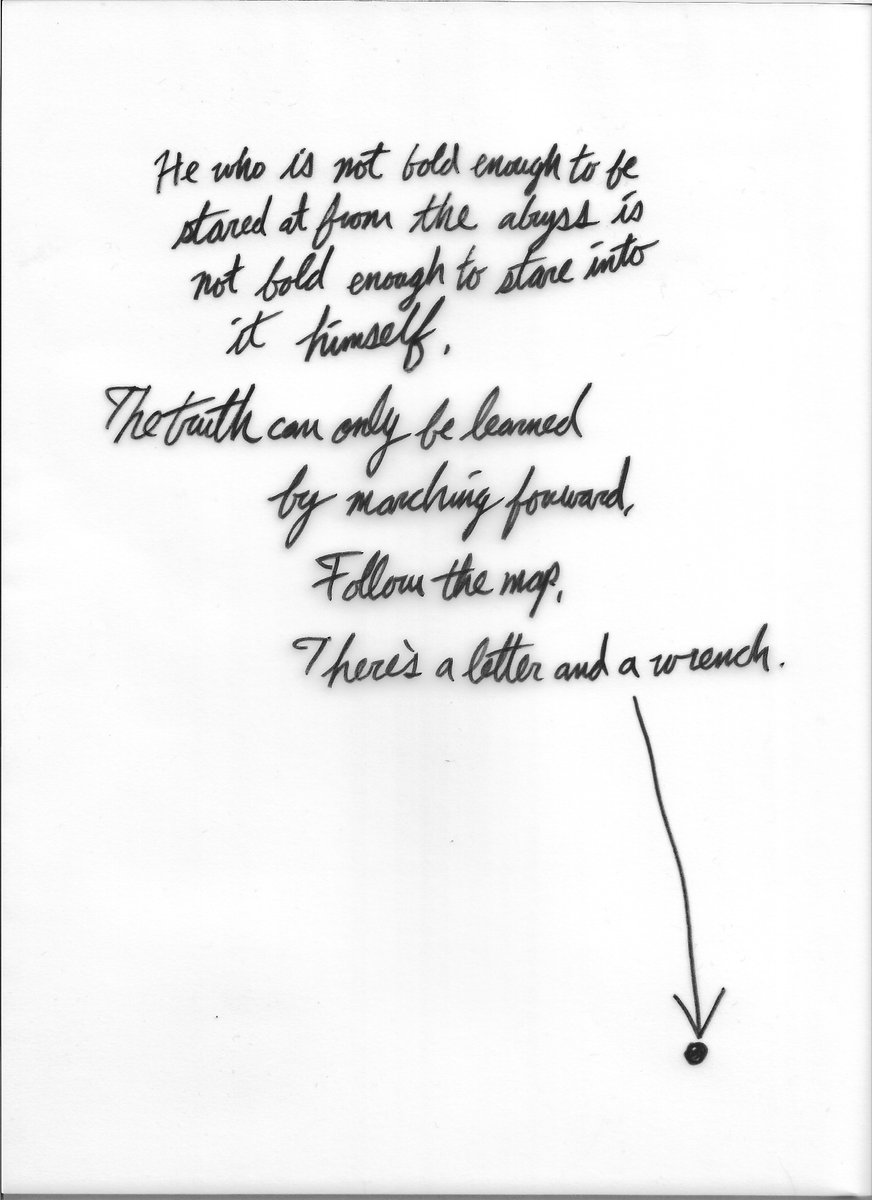 He who is not bold enough to be
stared at from the abyss is
not bold enough to stare into
it himself.
The truth can only be learned
by marching forward,
Follow the map,
There's a letter and a wrench.